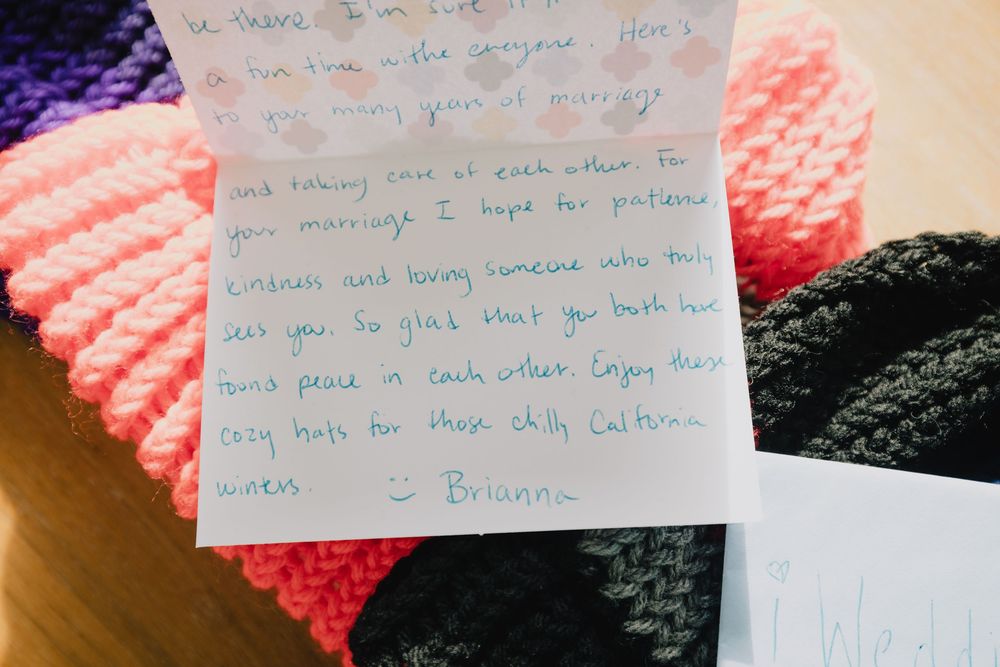 be there. I'm sure it
a fun time withe eneyone. Here's
to your many years of marriage
and taking care of each other. For
your marriage I hope for patience,
kindness and loving someone who truly
sees you. So glad that you both have
found peace in each other. Enjoy these
cozy hats for those chilly California
winters. :) Brianna
Weddi